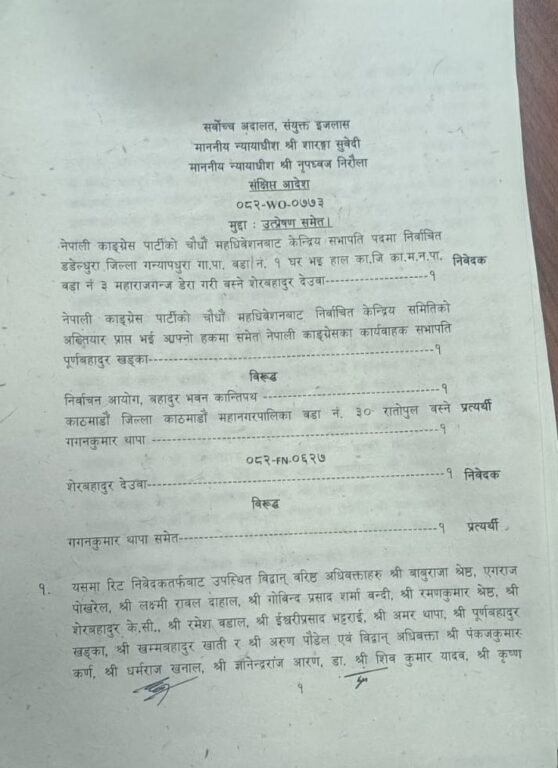 सर्वोच्च अदालत, संयुक्त इजलास
माननीय न्यायाधीश श्री शारङ्गा सुवेदी
माननीय न्यायाधीश श्री नृपध्वज निरौला
संक्षिप्त आदेश
०८२-WO-०७७३
मुद्दा : उत्प्रेषण समेत।
नेपाली काङ्ग्रेस पार्टीको चौधौं महधिवेशनबाट केन्द्रिय सभापति पदमा निर्वाचित
डडेल्धुरा जिल्ला गन्यापधुरा गा.पा. वडा नं. १ घर भइ हाल का.जि का.म.न.पा. निवेदक
वडा नं ३ महाराजगन्ज डेरा गरी बस्ने शेरबहादुर देउवा----------------------१
नेपाली काङ्ग्रेस पार्टीको चौधौं महधिवेशनबाट निर्वाचित केन्द्रिय समितिको
अख्तियार प्राप्त भई आफ्नो हकमा समेत नेपाली काङ्ग्रेसका कार्यवाहक सभापति
पूर्णबहादुर खड्का----------------------------------------------१
विरूद्ध
निर्वाचन आयोग, बहादुर भवन कान्तिपथ ----------------------------१
काठमाडौं जिल्ला काठमाडौं महानगरपालिका वडा नं. ३० रातोपुल बस्ने प्रत्यर्थी
गगनकुमार थापा ----------------------------------------------१
०८२-FN-०६२७
शेरबहादुर देउवा----------------------------------------------१ निवेदक
विरूद्ध
गगनकुमार थापा समेत------------------------------------------१ प्रत्यर्थी
१. यसमा रिट निवेदकतर्फबाट उपस्थित विद्वान् वरिष्ठ अधिवक्ताहरु श्री बाबुराजा श्रेष्ठ, एगराज
पोखरेल, श्री लक्ष्मी रावल दाहाल, श्री गोबिन्द प्रसाद शर्मा बन्दी, श्री रमणकुमार श्रेष्ठ, श्री
शेरबहादुर के.सी., श्री रमेश बडाल, श्री ईश्वरीप्रसाद भट्टराई, श्री अमर थापा, श्री पूर्णबहादुर
खड्का, श्री खम्मबहादुर खाती र श्री अरुण पौडेल एवं विद्वान् अधिवक्ता श्री पंकजकुमार
कर्ण, श्री धर्मराज खनाल, श्री ज्ञानेन्द्रराज आरण, डा. श्री शिव कुमार यादव, श्री कृष्ण
१